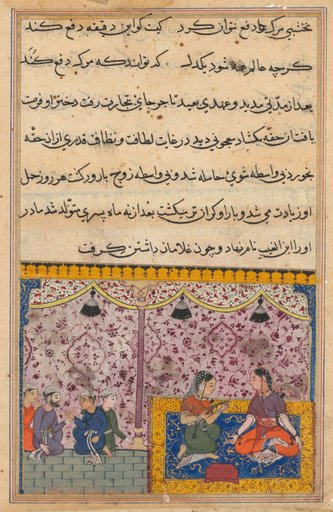 نخشبی مرکه را دفع نتوان کرد کیست کو این دقیقه دفع کند
گرچه عالم همه شود یکدل که تواند که مرکه دفع کند
بعد از مدتی مدید و عهدی بعید تاجر جای تجارت رفت دختر او فرصت
یافت از حقه بکشاد سحوقی دید در غایت لطافت و نظافت قدری از ان حقه
بخورد بی واسطه شوی حامله شد و بی واسطه زوج بارور کشت هر روز حمل
او زیادت می شد و بار او کران تر می کشت بعد از نه ماه پسری متولد شد مادر
او را ابن الغیب نام نهاد و چون غلامان داشتن کرفت